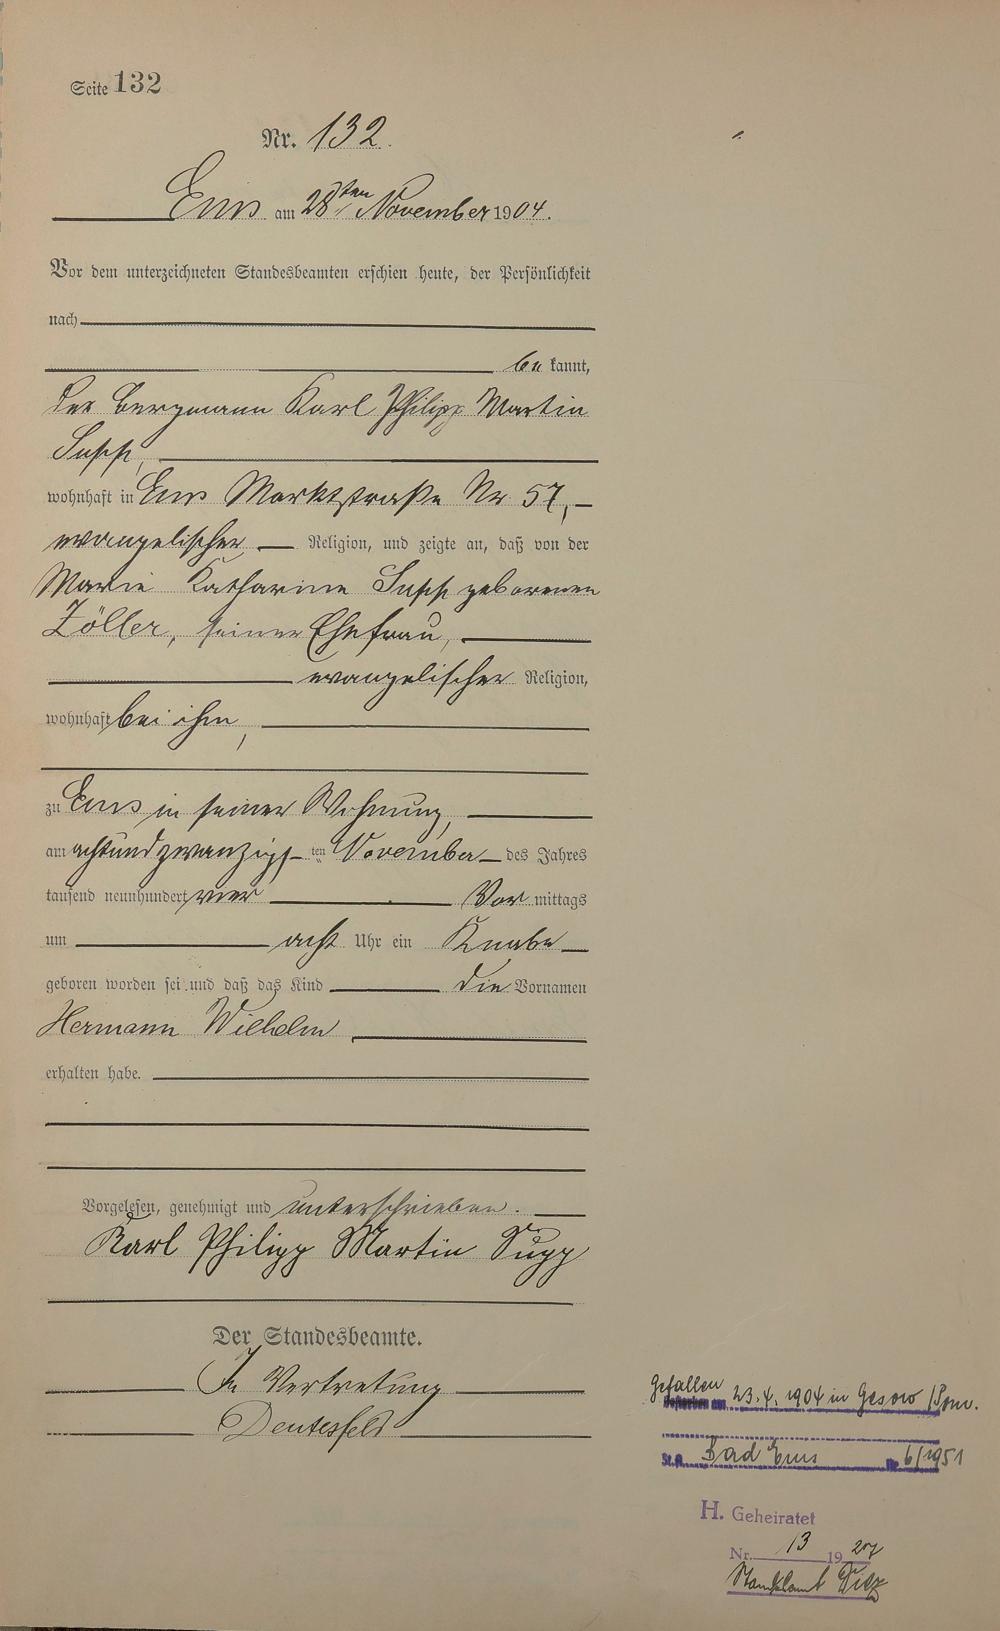 Seite 132
Nr. 132.
Ems am 28ten November 1904.
Vor dem unterzeichneten Standesbeamten erschien heute, der Persönlichkeit
nach
be kannt,
der Bergmann Karl Philipp Martin
Supp,
wohnhaft in Ems Marktstraße Nr 57,
evangelischer Religion, und zeigte an, daß von der
Marie Katharine Supp geborenen
Zöller, seiner Ehefrau,
evangelischer Religion,
wohnhaft bei ihm,
zu Ems in seiner Wohnung,
am achtundzwanzigs ten November des Jahres
tausend neunhundert vier Vor mittags
um acht Uhr ein Knabe
geboren worden sei und daß das Kind die Vornamen
Hermann Wilhelm
erhalten habe.
Vorgelesen, genehmigt und unterschrieben.
Karl Philipp Martin Supp
Der Standesbeamte.
In Vertretung
Gefallen 23.4.1904 in /Pom.
St.A. Bad Ems Nr. 6/1951
H. Geheiratet
Nr. 13 1927
Standesamt Diez